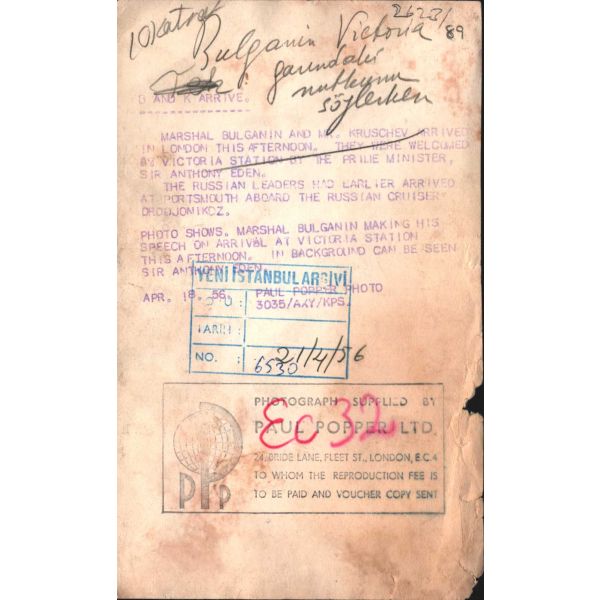 2623/
89
Bulganin Victoria
garındaki
nutkunu
söylerken
B AND K ARRIVE.
MARSHAL BULGANIN AND MR. KRUSCHEV ARRIVED
IN LONDON THIS AFTERNOON. THEY WERE WELCOMED
BY VICTORIA STATION BY THE PRIME MINISTER,
SIR ANTHONY EDEN.
THE RUSSIAN LEADERS HAD EARLIER ARRIVED
AT PORTSMOUTH ABOARD THE RUSSIAN CRUISER
PHOTO SHOWS. MARSHAL BULGANIN MAKING HIS
SPEECH ON ARRIVAL AT VICTORIA STATION
THIS AFTERNOON. IN BACKGROUND CAN BE SEEN
SIR ANTHONY EDEN.
YENİ İSTANBUL ARŞİVİ
APR. 18. 56. PAUL POPPER PHOTO
3035/AXY/KPS.
TARİH :
21/4/56
NO. : 6530
PHOTOGRAPH SUPPLIED BY
EC 32
PAUL POPPER LTD.
24, BRIDE LANE, FLEET ST., LONDON, E.C.4
TO WHOM THE REPRODUCTION FEE IS
TO BE PAID AND VOUCHER COPY SENT
PPP